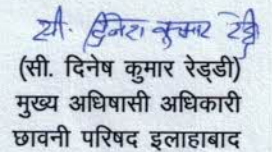 सी. दिनेश कुमार रेड्डी
(सी. दिनेष कुमार रेड्डी)
मुख्य अधिषासी अधिकारी
छावनी परिषद इलाहाबाद